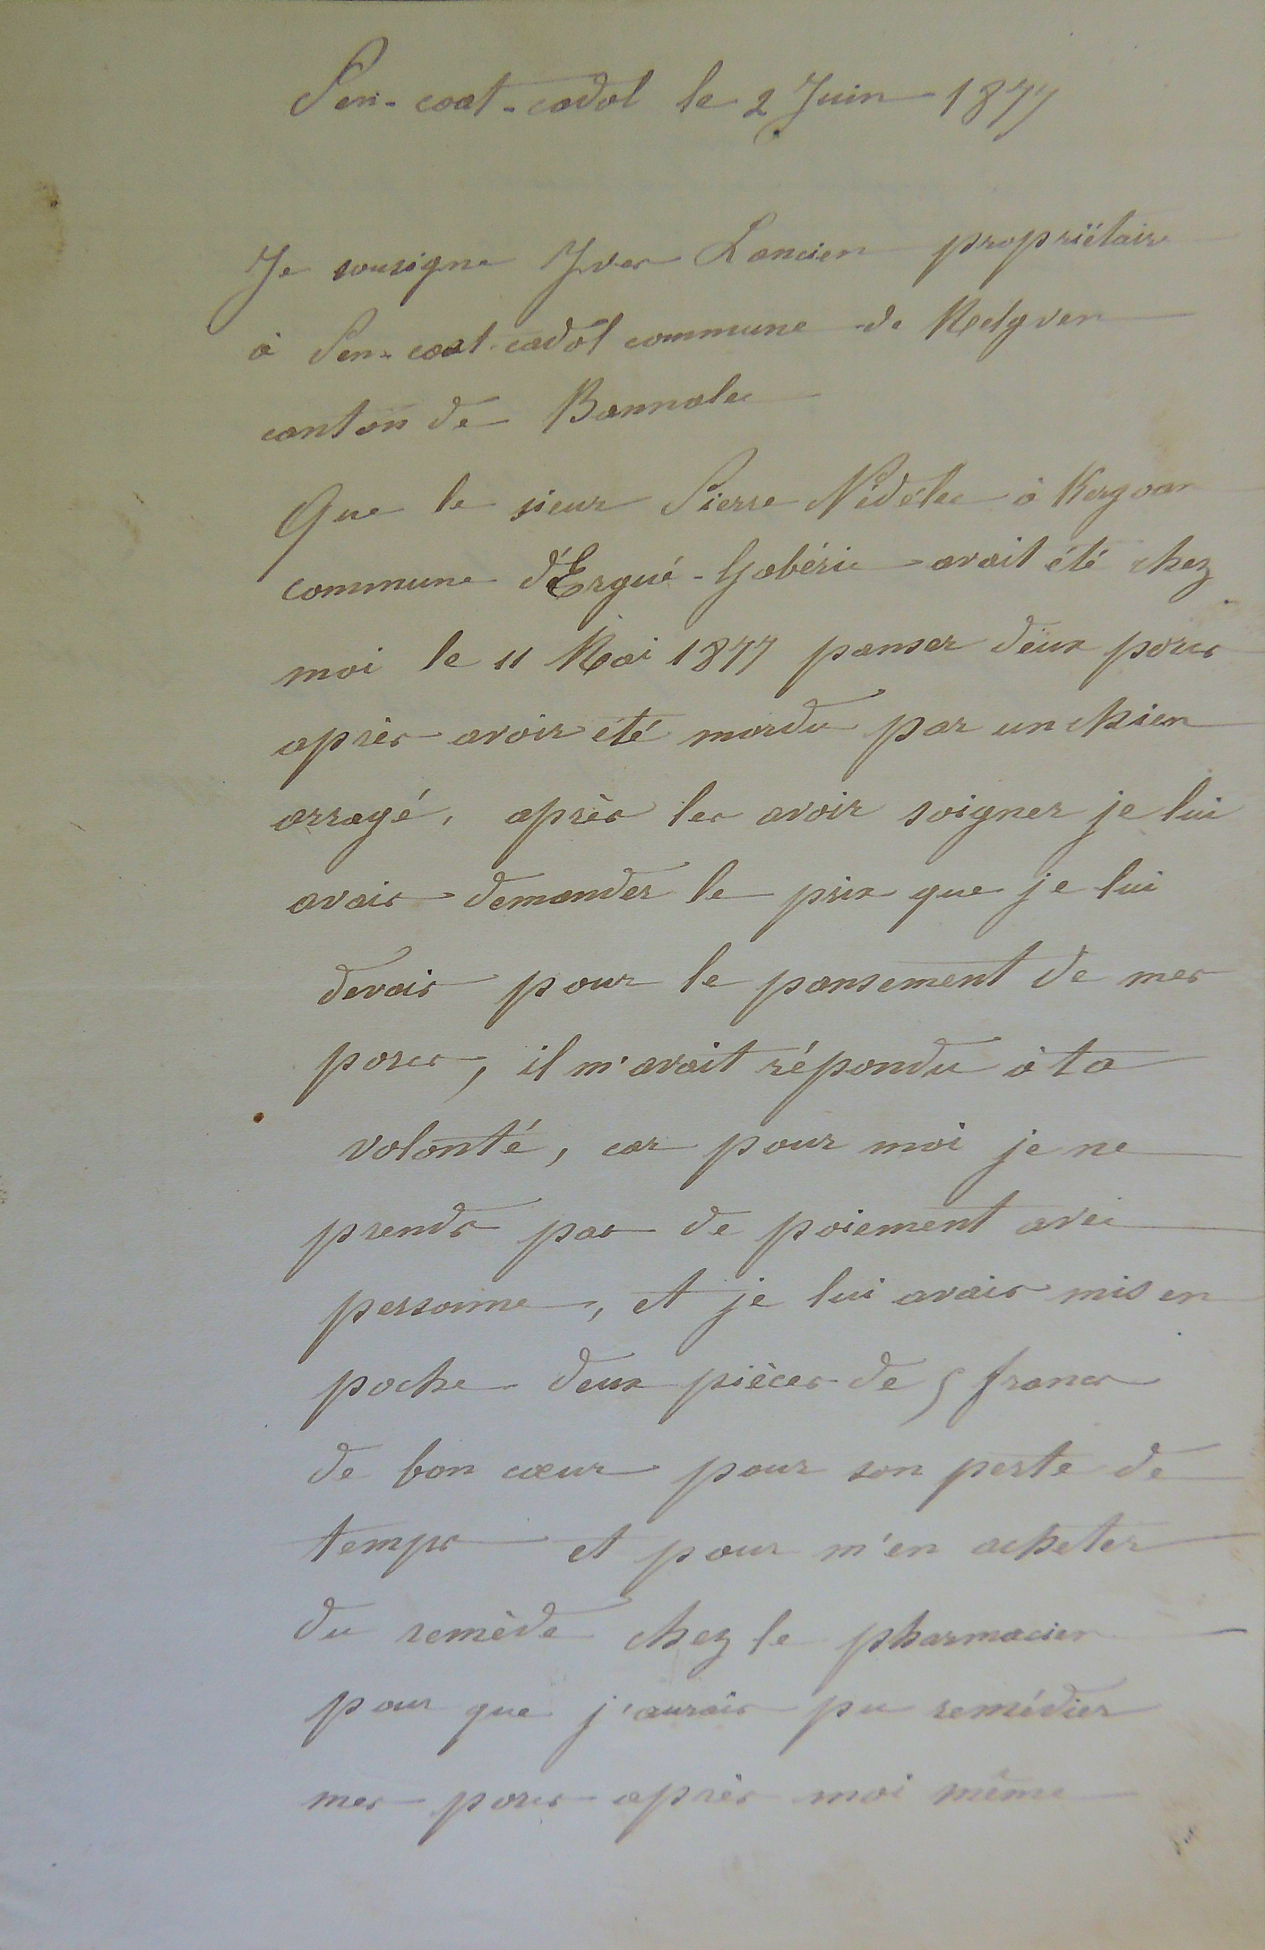 Pen-coat-cadol le 2 Juin 1877
Je sousigne Yves Lancien propriëtaire
à Pen-coat-cadol commune de Melgven
canton de Bannalec
Que le sieur Pierre Nédélec à Kergoan
commune d'Ergué-Gabéric avait été chez
moi le 11 Mai 1877 panser deux porcs
après avoir été mordu par un chien
arragé, après les avoir soigner je lui
avais demander le prix que je lui
devais pour le pansement de mes
porcs, il m'avait répondu à ta
volonté, car pour moi je ne
prends pas de paiement avec
personne, et je lui avais mis en
poche deux pièces de 5 francs
de bon cœur pour son perte de
temps et pour m'en acheter
du remède chez le pharmacien
pour que j'aurais pu remédier
mes porcs après moi même